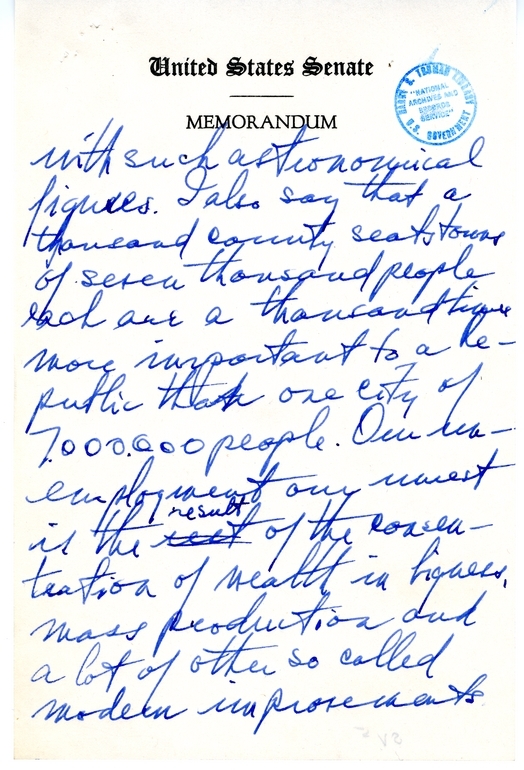 United States Senate
MEMORANDUM
HARRY S. TRUMAN LIBRARY
"NATIONAL
ARCHIVES AND
RECORDS
SERVICE"
U.S. GOVERNMENT
with such astronomical
figures. I also say that a
thousand county seats towns
of seven thousand people
each are a thousand times
more important to a Re-
public than one city of
7,000,000 people. Our un-
employment our unrest
result
is the of the concen-
tration of wealth in bigness,
mass production and
a lot of other so called
modern improvements